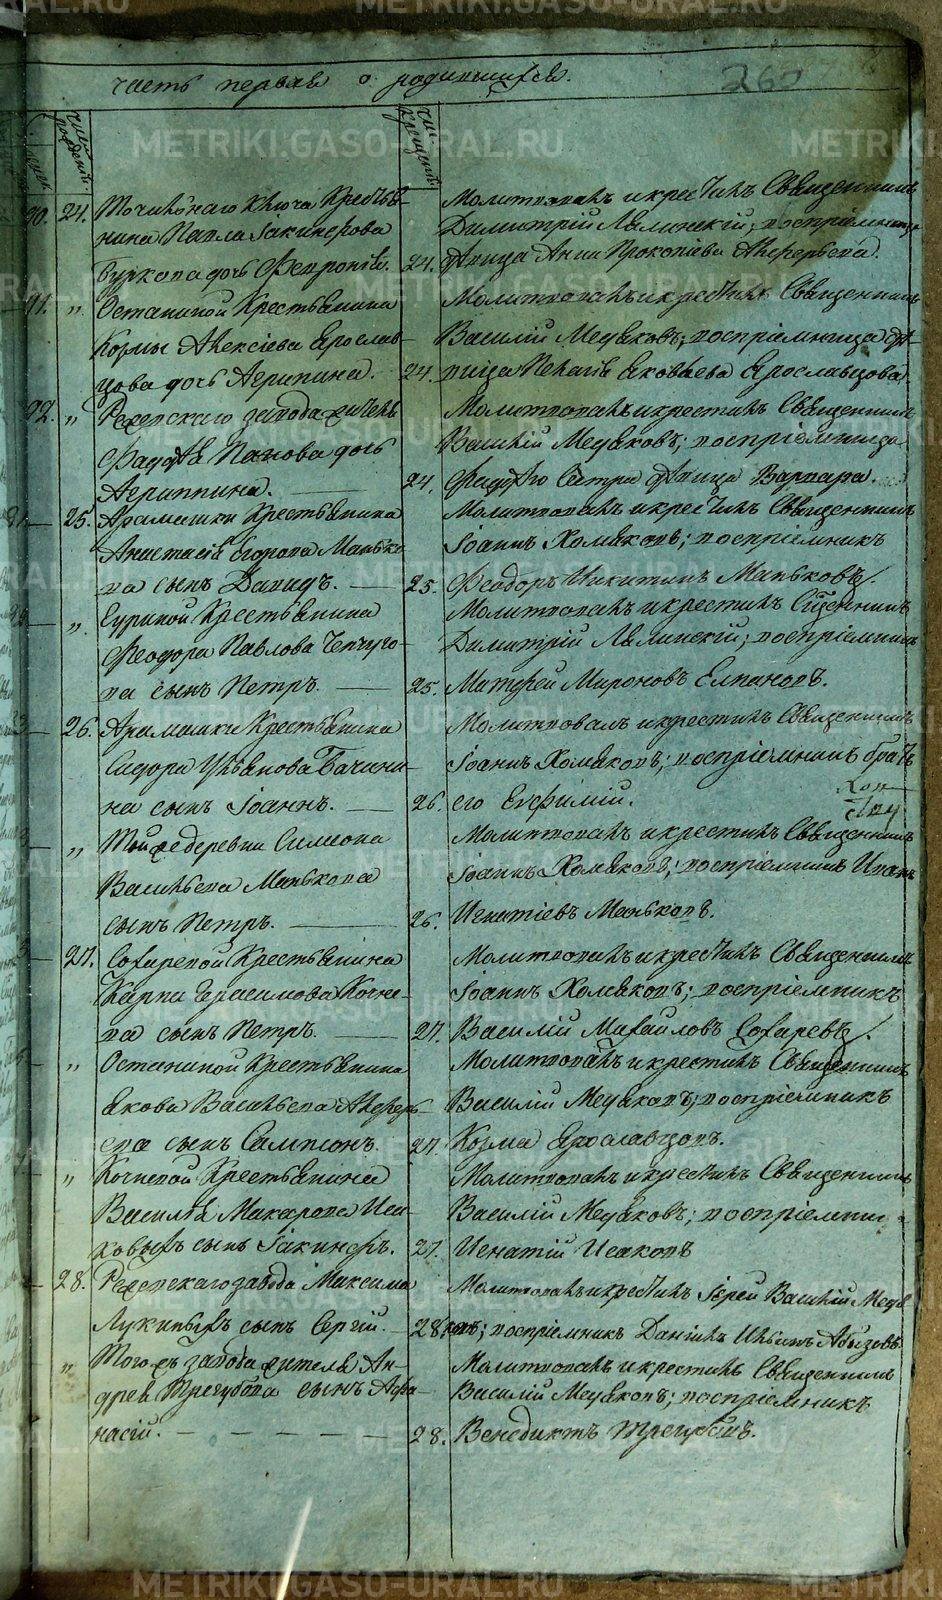 часть первая о родившихся.
260
числ рожденія.
чис крещенія
90. 24. Точильнаго Ключа Крестья-
нина Павла Іакинфова
Буркова дочь Февронія.
Молитвовалъ и крестилъ Священникъ
Димитрій Лялинскій; воспріемница
24. дѣвица Анна Прокопіева Аѳерьева.
91. „ Останиной Крестьянина
Козмы Алексіева Ярослав-
цова дочь Агрипина.
Молитвовалъ и крестилъ Священникъ
Василій Медяковъ; воспріемница дѣ-
24. вица Пелагія Яковлева Ярославцова.
92. „ Режевскаго завода жителя
Фаддѣя Панова дочь
Агриппина.
Молитвовалъ и крестилъ Священникъ
Василій Медяковъ; воспріемница
24. Фаддѣя Сестра дѣвица Варвара.
25. Арамашки Крестьянина
Анастасія Егорова Манько-
ва сынъ Давидъ.
Молитвовалъ и крестилъ Священникъ
Іоаннъ Хомяковъ; воспріемник
25. Феодоръ Никитинъ Маньковъ.
„ Гуриной Крестьянина
Феодора Павлова Чепчуго-
ва сынъ Петръ.
Молитвовалъ и крестилъ Сщенникъ
Димитрій Лялинскій; воспріемникъ
25. Матфей Мироновъ Елпановъ.
26. Арамашки Крестьянина
Сидора Ульянова Бачини-
на сынъ Іоаннъ.
Молитвовалъ и крестилъ Священникъ
Іоаннъ Хомяковъ; воспріемник братъ
26. его Евфимій.
„ Той же деревни Симеона
Васильева Манькова
сынъ Петръ.
Молитвовалъ и крестилъ Священникъ
Іоаннъ Хомяковъ; воспріемникъ Иванъ
26. Игнатіевъ Маньковъ.
27. Сохаревой Крестьянина
Карпа Герасимова Кочне-
ва сынъ Петръ.
Молитвовалъ и крестилъ Священникъ
Іоаннъ Хомяковъ; воспріемникъ
27. Василій Михайловъ Сохаревъ.
„ Останиной Крестьянина
Якова Васильева Аѳерь-
ева сынъ Сампсонъ.
Молитвовалъ и крестилъ Священникъ
Василій Медяковъ; воспріемникъ
27. Козма Ярославцовъ.
„ Кочневой Крестьянина
Василья Макарова Иса-
ковыхъ сынъ Іакинфъ.
Молитвовалъ и крестилъ Священникъ
Василій Медяковъ; воспріемни-
27. Игнатій Исаковъ
28. Режевскаго завода Максима
Лукиныхъ сынъ Сергій.
Молитвовалъ и крестилъ Іерей Василій Медя-
28. ковъ; воспріемник Даніилъ Ильинъ Абызовъ
„ Того жъ завода жителя Ан-
дрея Трегубова сынъ Афа-
насій.
Молитвовалъ и крестилъ Священникъ
Василій Медяковъ; воспріемникъ
28. Венедиктъ Трегубовъ.
METRIKI.GASO-URAL.RU